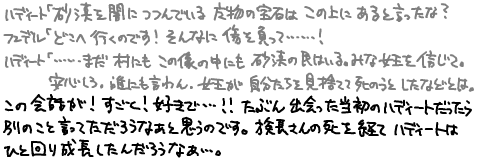 ハディート「砂漠を闇につつんでいる 魔物の宝石は この上にあると言ったな?
フェデル「どこへ行くのです! そんなに傷を負って……!
ハディート「……まだ 村にも この儀の中にも 砂漠の民はいる。みな女王を信じて。
安心しろ。誰にも言わん。女王が 自分たちを見捨てて死のうとしたなどとは。
この会話が! すごく! 好きで…!! たぶん 出会った当初のハディートだったら
別のこと言ってただろうなあと思うのです。族長さんの死を経て ハディートは
ひと回り成長したんだろうなぁ…。